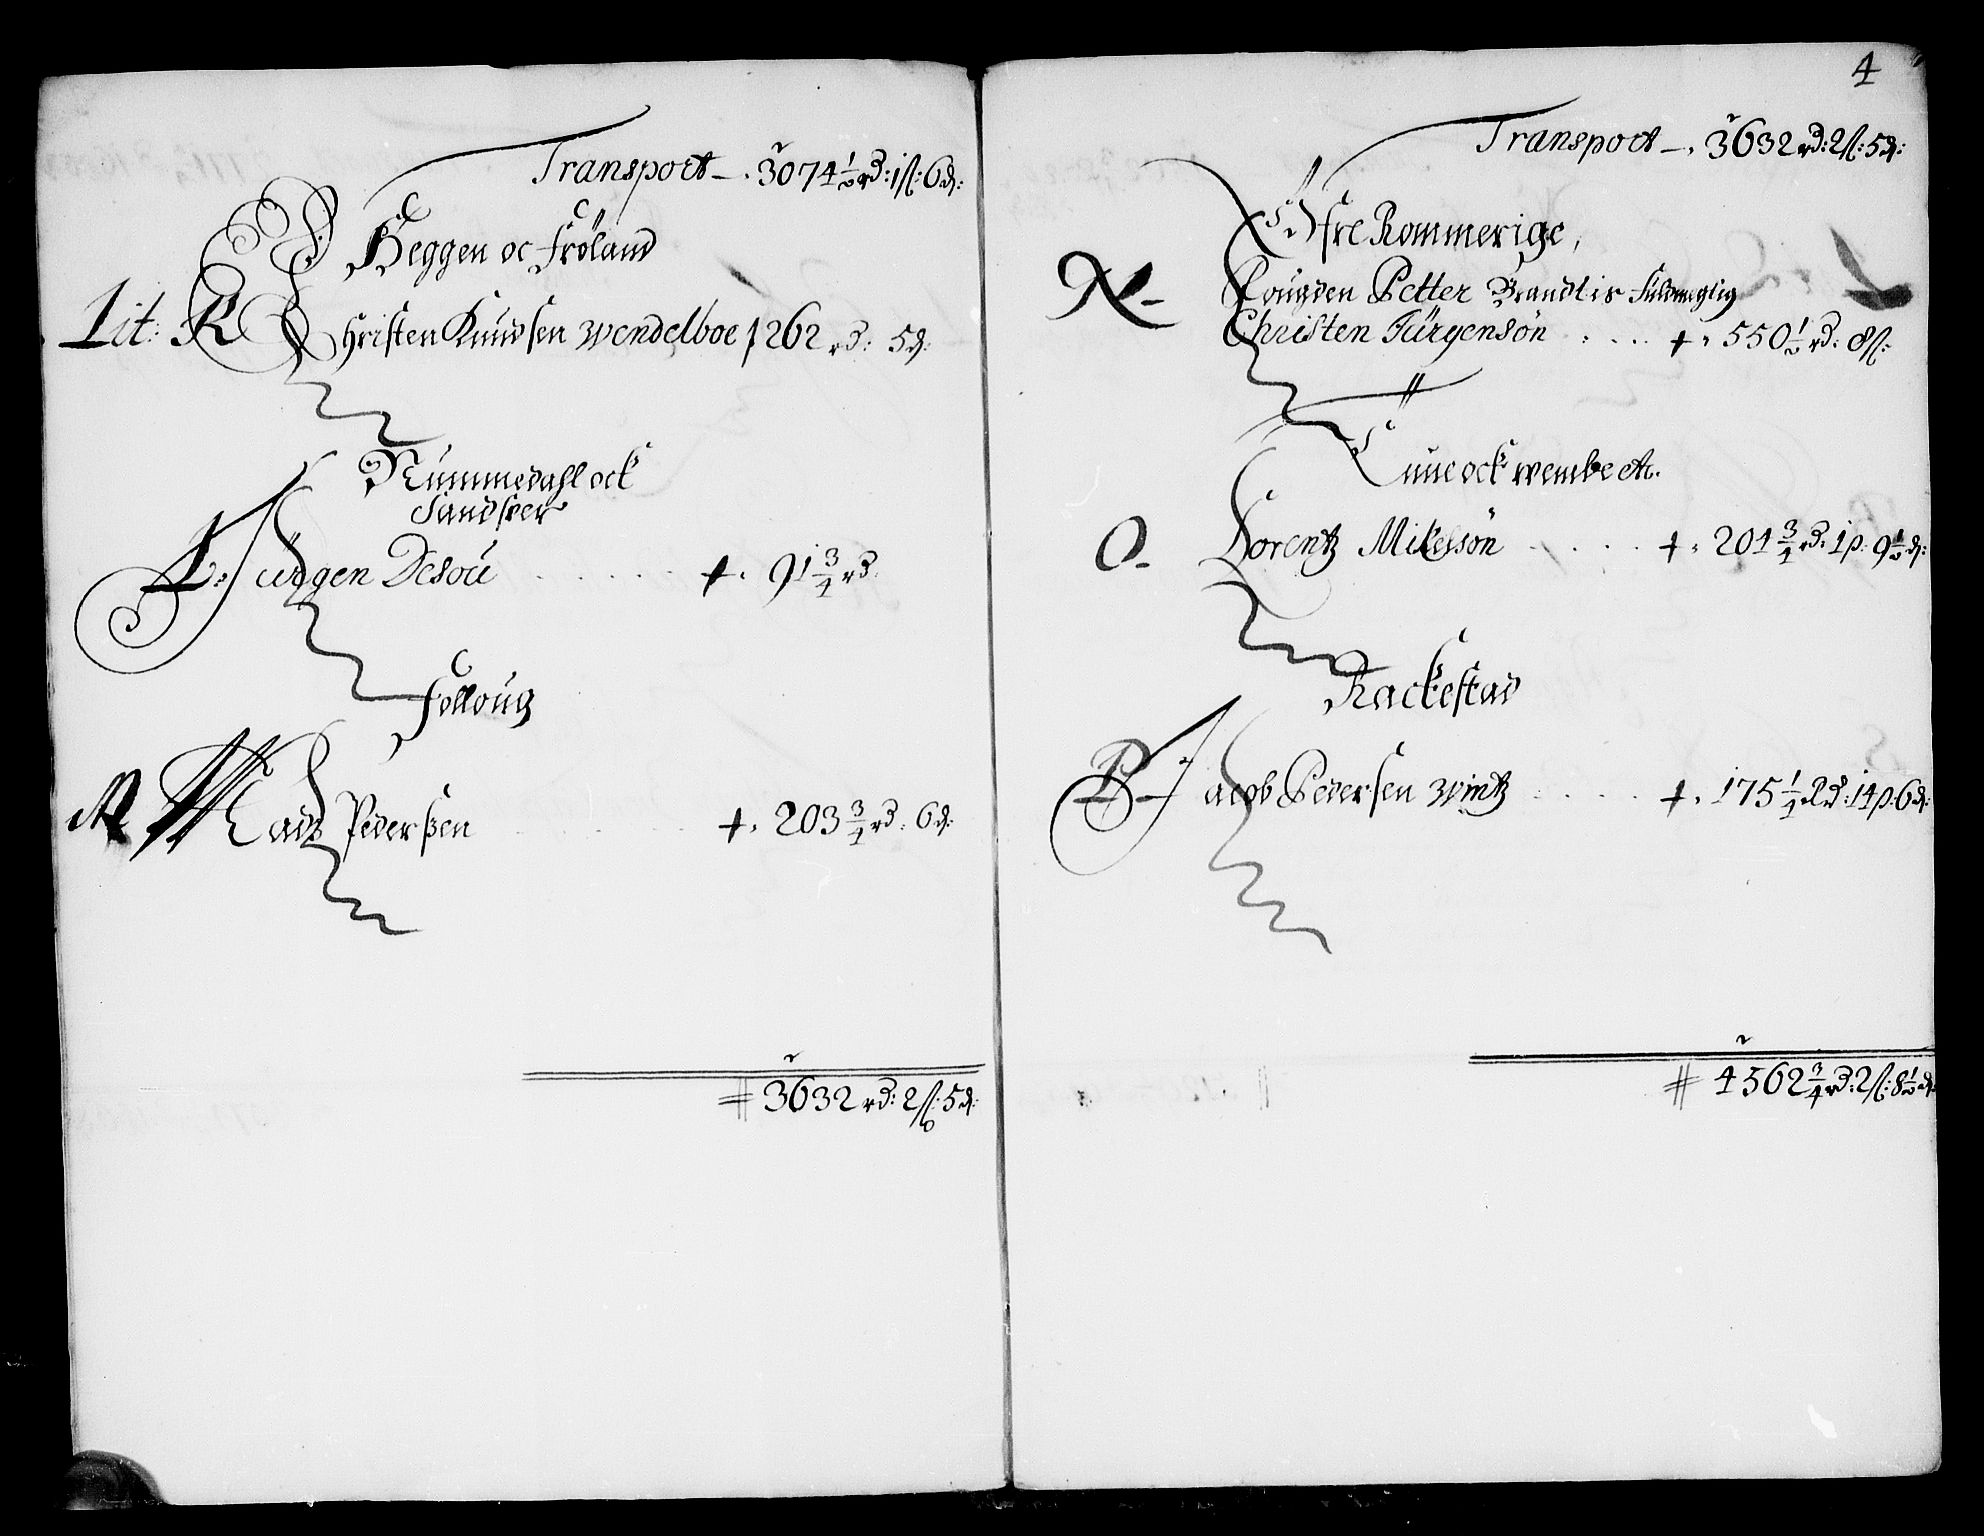 Transport — 3074½ rd: 1 ſſ: 6 d:
Heggen oc Fröland
Lit: K Christen Knudsen Wendelboe ƚ 262 rd: 5 d:
Nummedahl ock
Sandsver
L: Jürgen Desou . . . . . + . 91¾ rd.
Follough
M Mads Pederßen + . 203¾ rd. 6 d.
# 3632 rd: 2 ſſ: 5 d:
4
Transport — . 3632 rd: 2 ſſ: 5 d:
Öfre Rommerige,
N – Fougden Petter Brandt is fuldmegtig
Christen Jürgensön . . . . + . 550½ rd. 8 ſſ:
ock wembe etc.
O – Lorentz Mikelsön . . . . + . 201¾ rd. 1 β. 9½ d:
Rackestad
P – Jacob Pedersen Wintz . . . . + . 175¼ rd: 14 β. 6 d:
# 4562¾ rd: 2 ſſ: 8½ d: